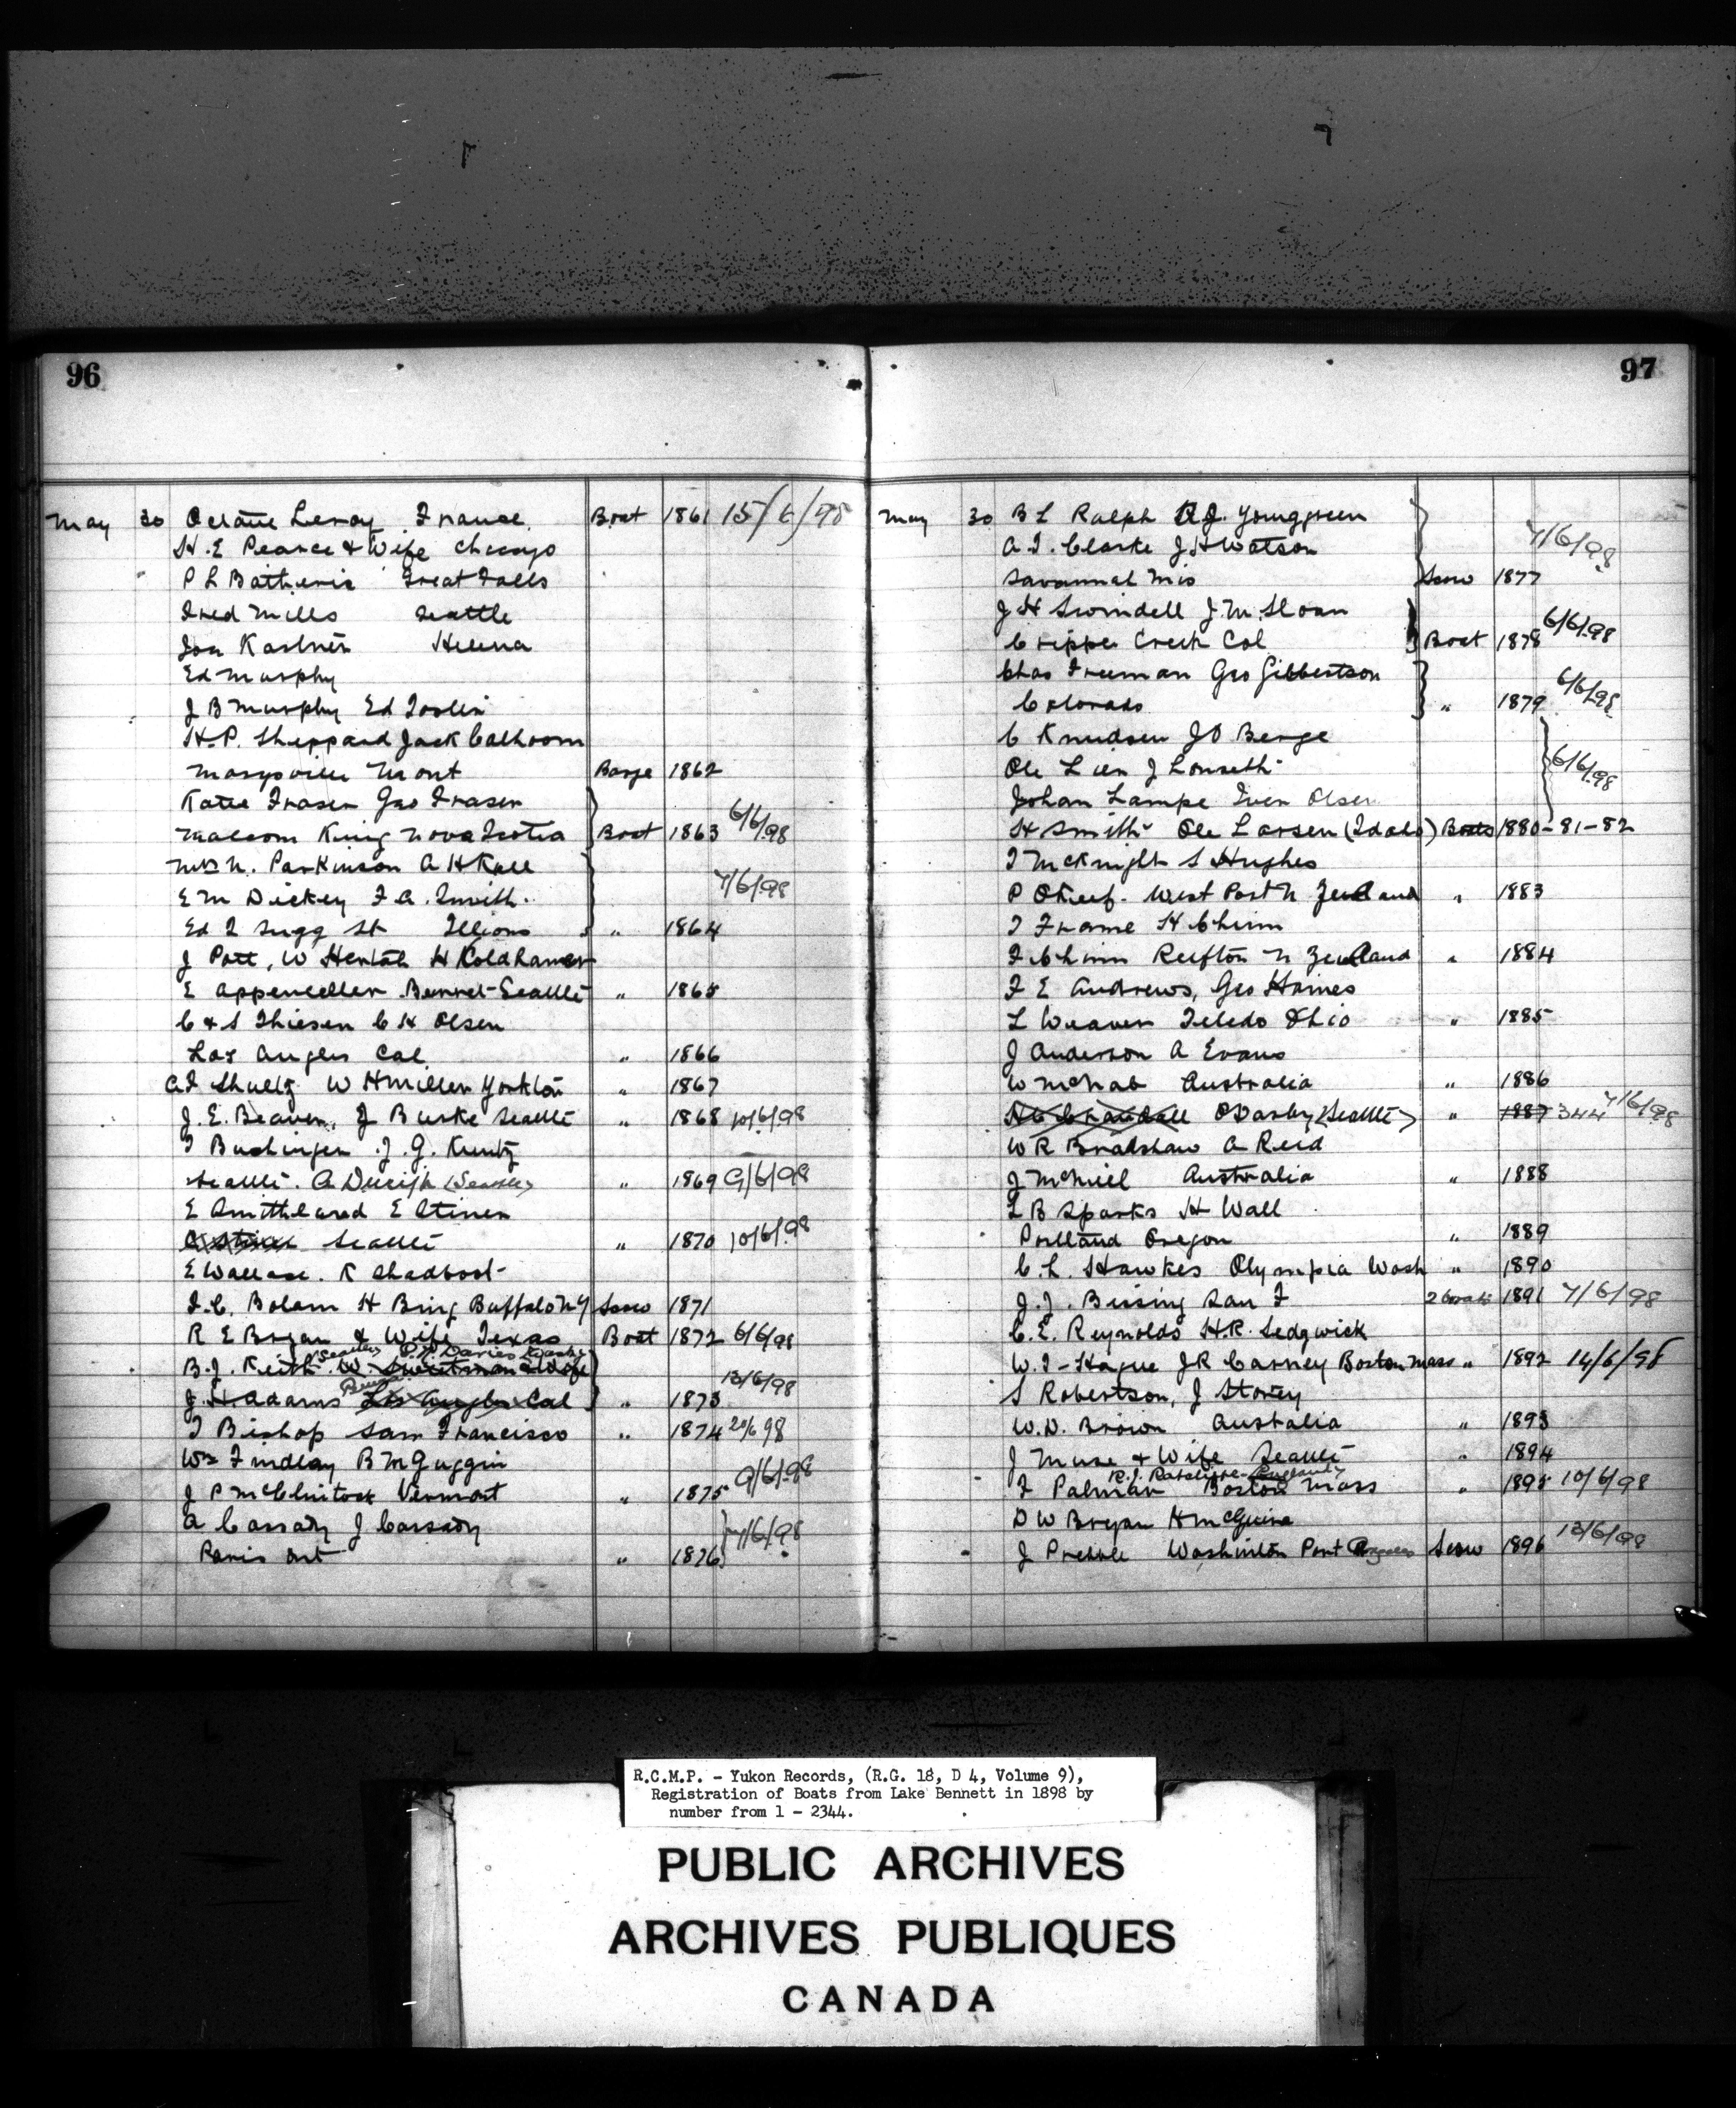 96
May 30 Octave Leroy France Boat 1861 15/6/98
H. E Pearce & Wife Chicago
P L Batherie Great Falls
Fred Mills Seattle
Kastner Helena
Ed Murphy
J B Murphy Ed Toslin
H. P. Sheppard Jack Calhoom
Marysville Mont Barge 1862
Katie Fraser Geo Fraser
Malcom King Nova Scotia Boat 1863 6/6/98
Mrs N. Parkinson A H Kall
E M Dickey F. A. Smith 7/6/98
Ed Sugg St Illions " 1864
J Pott, W H Koldhamer
E Appenceller Bennet Seattle " 1865
C & S Thiesen C H Olsen
Los Angles Cal " 1866
A F Shultz W H Miller Yorkton " 1867
J. E. Beaven, J Burke Seattle " 1868 10/6/98
J. G. Kuntz
Seattle. (Seattle) " 1869 9/6/98
E E Stiner
Seattle " 1870 10/6/98
E Wallace. K Shadbolt
F. C. Bolam H Bring Buffalo N Y Scow 1871
R E Bryan & Wife Texas Boat 1872 6/6/98
(Seattle) Davies
B. J. Keith W. Sweetman & Wife
J. H. Adams Los Angles Cal " 1873 13/6/98
T Bishop Sam Francisco " 1874 20/6 98
Wm Findlay B McGuggin
J P McClintock Vermont " 1875 9/6/98
A Cassady J Cassady
Paris Ont " 1876 7/6/98
97
May 30 B L Ralph A. J. Younggreen
A. T. Clarke J. H Watson 7/6/98
Savannah Mis Scow 1877
J H Swindell J. M. Sloan
Cripple Creek Col Boat 1878 6/6/98
Chas Freeman Geo Gibbertson
Colorado " 1879 6/6/98
C Knudsen J O Berge
Ole Lien J Lonseth 6/6/98
Johan Lampe Iven Olsen
H Smith Ole Larsen (Idaho) Boats 1880-81-82
T McKnight S Hughes
P OKeef. West Port N Zealand " 1883
T Frame H Chinn
F Chinn Reefton N Zealand " 1884
F E Andrews, Geo Haines
L Weaver Teledo Ohio " 1885
J Anderson A Evans
W McNab Australia " 1886
H C Crandall O Darby (Seattle) " 1887 344 7/6/98
W R Bradshaw A Reid
J McNiel Australia " 1888
L B Sparks H Wall
Portland Oregon " 1889
C. L. Hawkes Olympia Wash " 1890
J. J. Bissing San F 2 boats 1891 7/6/98
C. E. Reynolds H. R. Sedgwick
W. T. Hague J R Carney Boston Mass " 1892 14/6/98
S Robertson, J Storey
W. D. Brown Australia " 1893
J Muse & Wife Seattle " 1894
R. J. Ratcliffe - England
F Palmer Boston Mass " 1895 10/6/98
D W Bryan H McGuire
J Prebble Washinton Port Angeles Scow 1896 13/6/98
R.C.M.P. - Yukon Records, (R.G. 18, D 4, Volume 9),
Registration of Boats from Lake Bennett in 1898 by
number from 1 - 2344.
PUBLIC ARCHIVES
ARCHIVES PUBLIQUES
CANADA